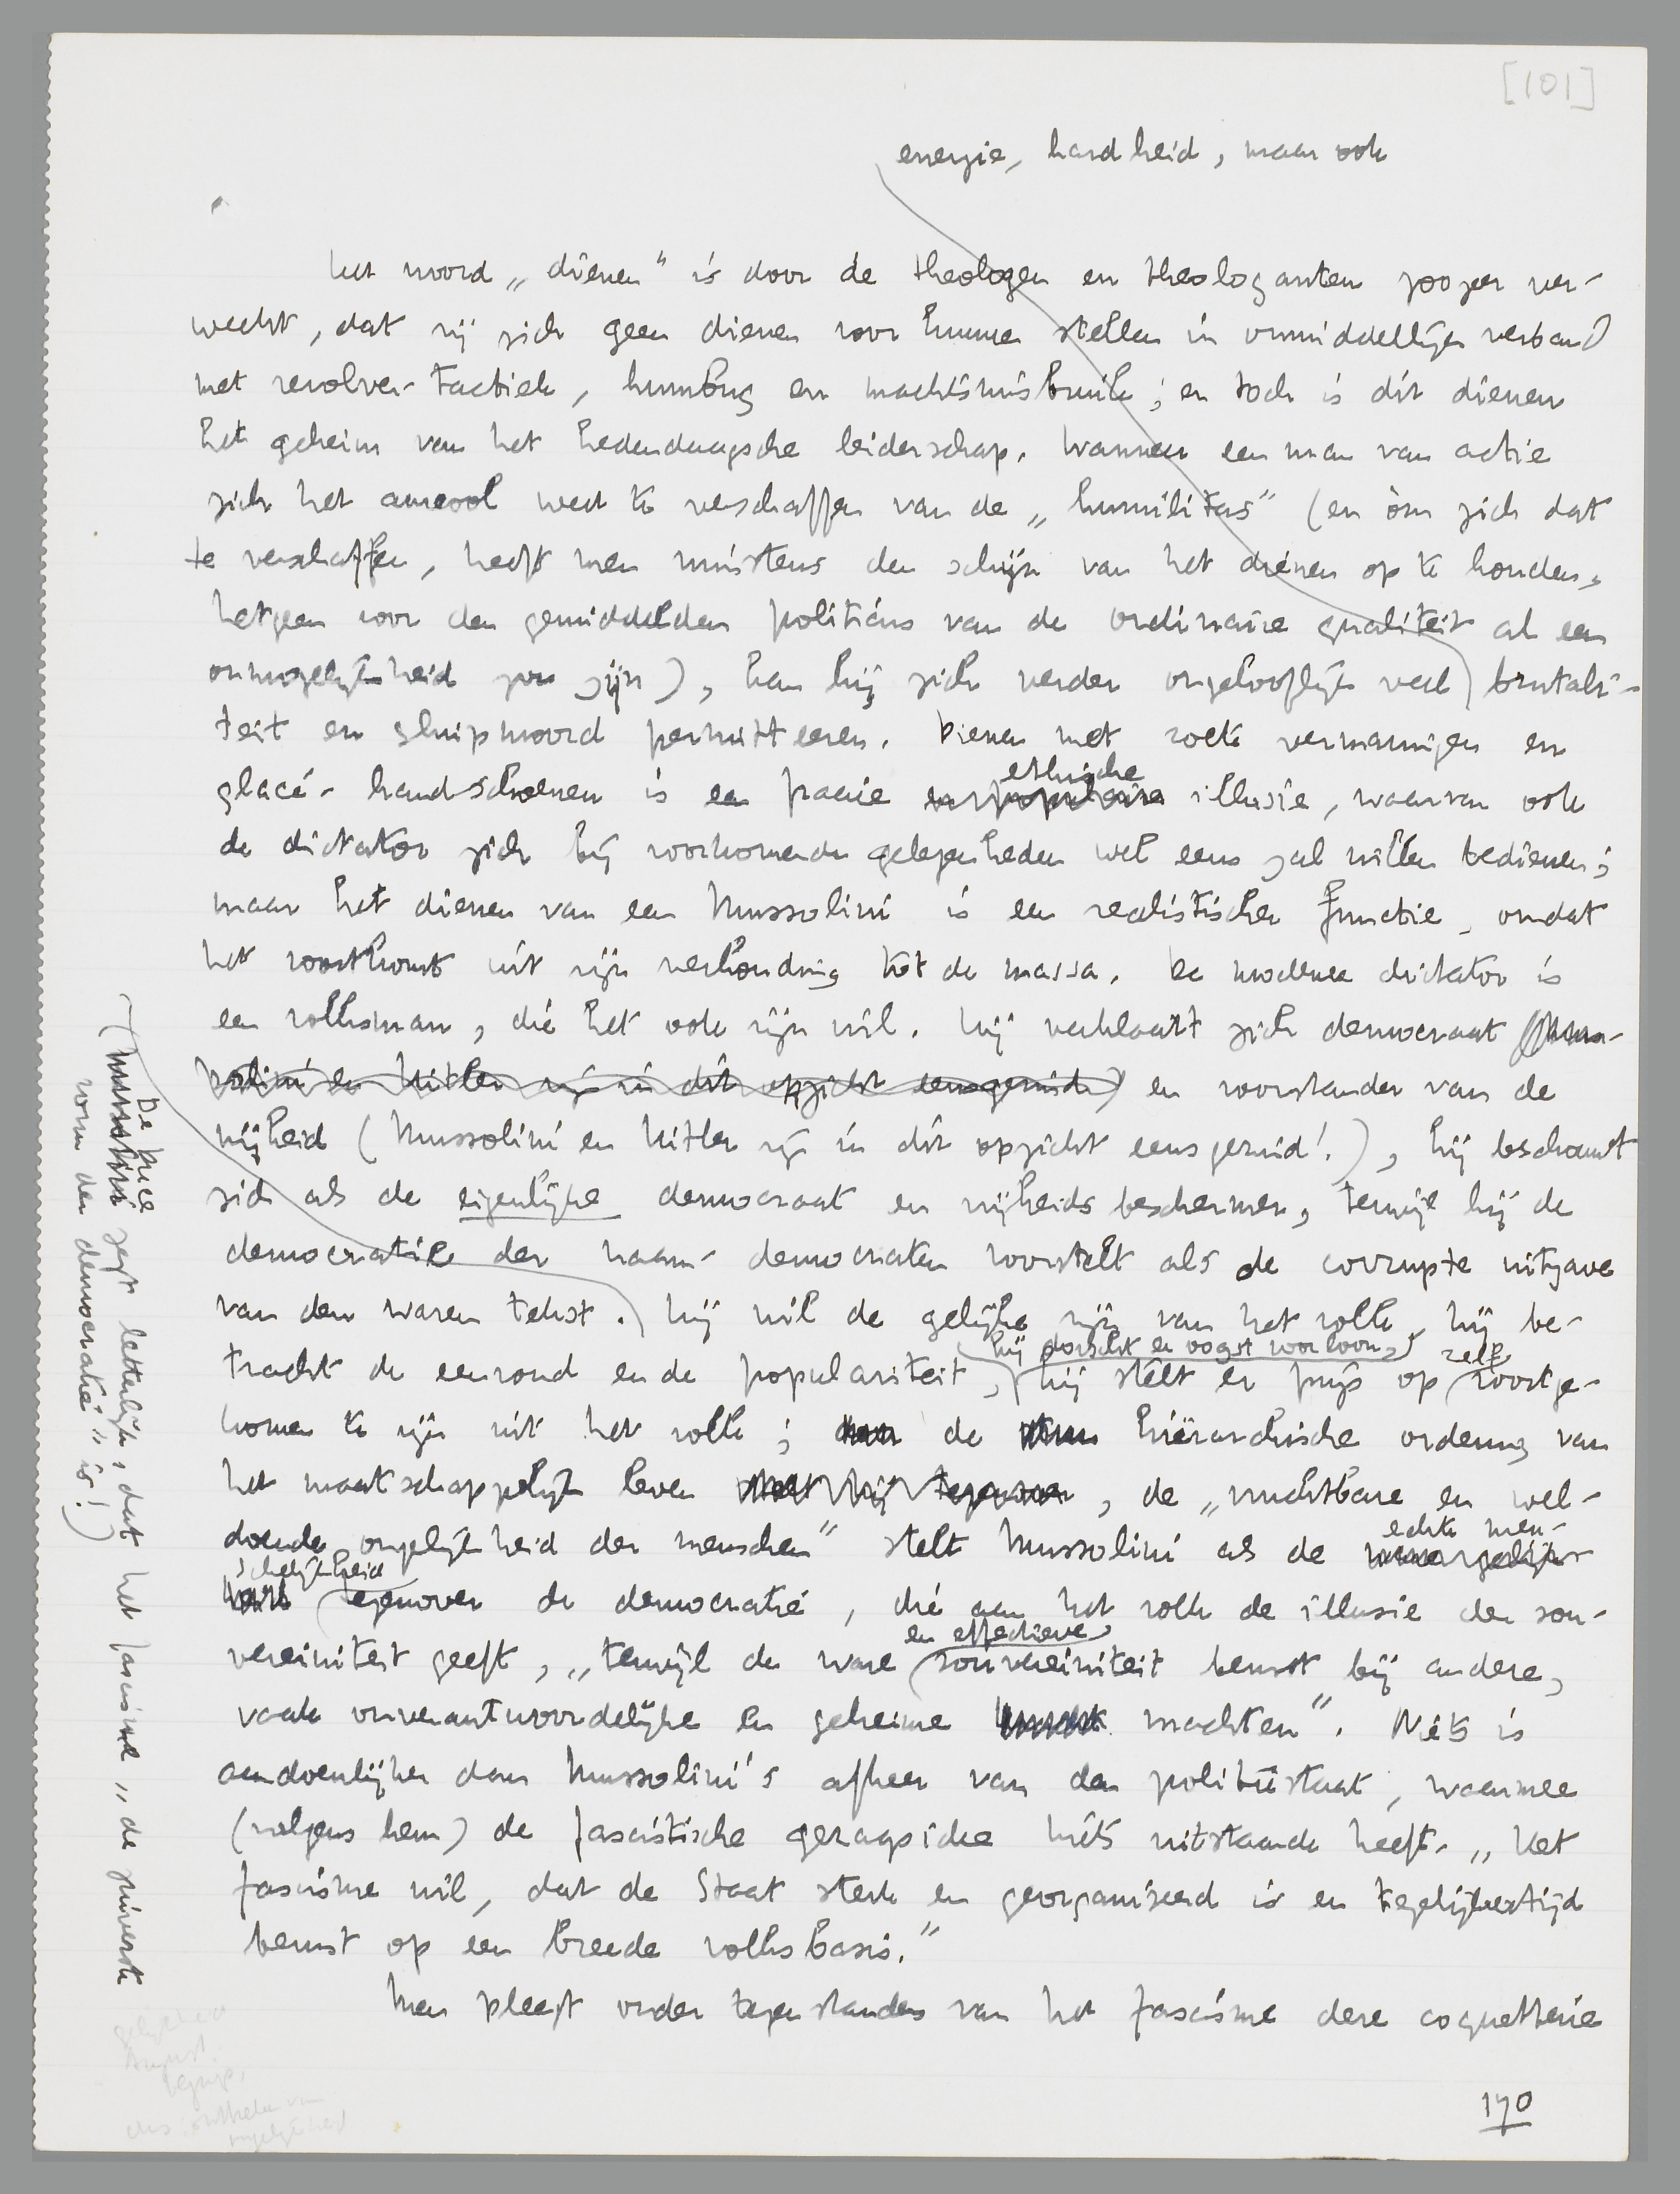 [101]
energie, hardheid, maar ook
Het woord „dienen" is door de theologen en theologanten zoozeer ver-
weekt, dat wij zich geen dienen voor kunnen stellen in onmiddellijk verband
met revolver-tactiek, humbug en machtsmisbruik; en toch is dit dienen
het geheim van het hedendaagsche leiderschap. Wanneer een man van actie
zich het aureool weet te verschaffen van de „humilitas" (en òm zich dat
te verschaffen, heeft men minstens den schijn van het dienen op te houden,
hetgeen voor den gemiddelden politicus van de ordinaire qualiteit al een
onmogelijkheid zou zijn), kan hij zich verder ongelooflijk veel brutali-
teit en sluipmoord permitteeren. Dienen met zoete vermaningen en
glacé-handschoenen is een fraaie ethische illusie, waarvan ook
de dictator zich bij voorkomende gelegenheden wel eens zal willen bedienen;
maar het dienen van een Mussolini is een realistische functie, omdat
het voortkomt uit zijn verhouding tot de massa. De moderne dictator is
een volksman, die het ook zijn wil. Hij verklaart zich democraat (Mus-
solini en Hitler zijn in dit opzicht eensgezind) en voorstander van de
vrijheid (Mussolini en Hitler zijn in dit opzicht eensgezind!), hij beschouwt
zich als de eigenlijke democraat en vrijheidsbeschermer, terwijl hij de
democratie der naam-democraten voorstelt als de corrupte uitgave
van den waren tekst. Hij wil de gelijke zijn van het volk, hij be-
tracht de eenvoud en de populariteit, hij stelt er prijs op zelf voortge-
hij dorscht en oogst voor loon,
komen te zijn uit het volk; de hiërarchische ordening van
het maatschappelijk leven, de „vruchtbare en wel-
doende ongelijkheid der menschen" stelt Mussolini als de echte men-
schelijkheid tegenover de democratie, die aan het volk de illusie der sou-
vereiniteit geeft, „terwijl de ware en effectieve souvereiniteit berust bij andere,
vaak onverantwoordelijke en geheime machten". Niets is
aandoenlijker dan Mussolini's afkeer van den politiestaat, waarmee
(volgens hem) de fascistische gezagsidee niets uitstaande heeft. „Het
fascisme wil, dat de Staat sterk en georganiseerd is en tegelijkertijd
berust op een breede volksbasis."
Men pleegt onder tegenstanders van het fascisme deze coquetterie
170
(Mussolini De Duce zegt letterlijk, dat het fascisme „de zuiverste
vorm der democratie" is!)
gelijkheid
August.
begrip,
ongelijkheid